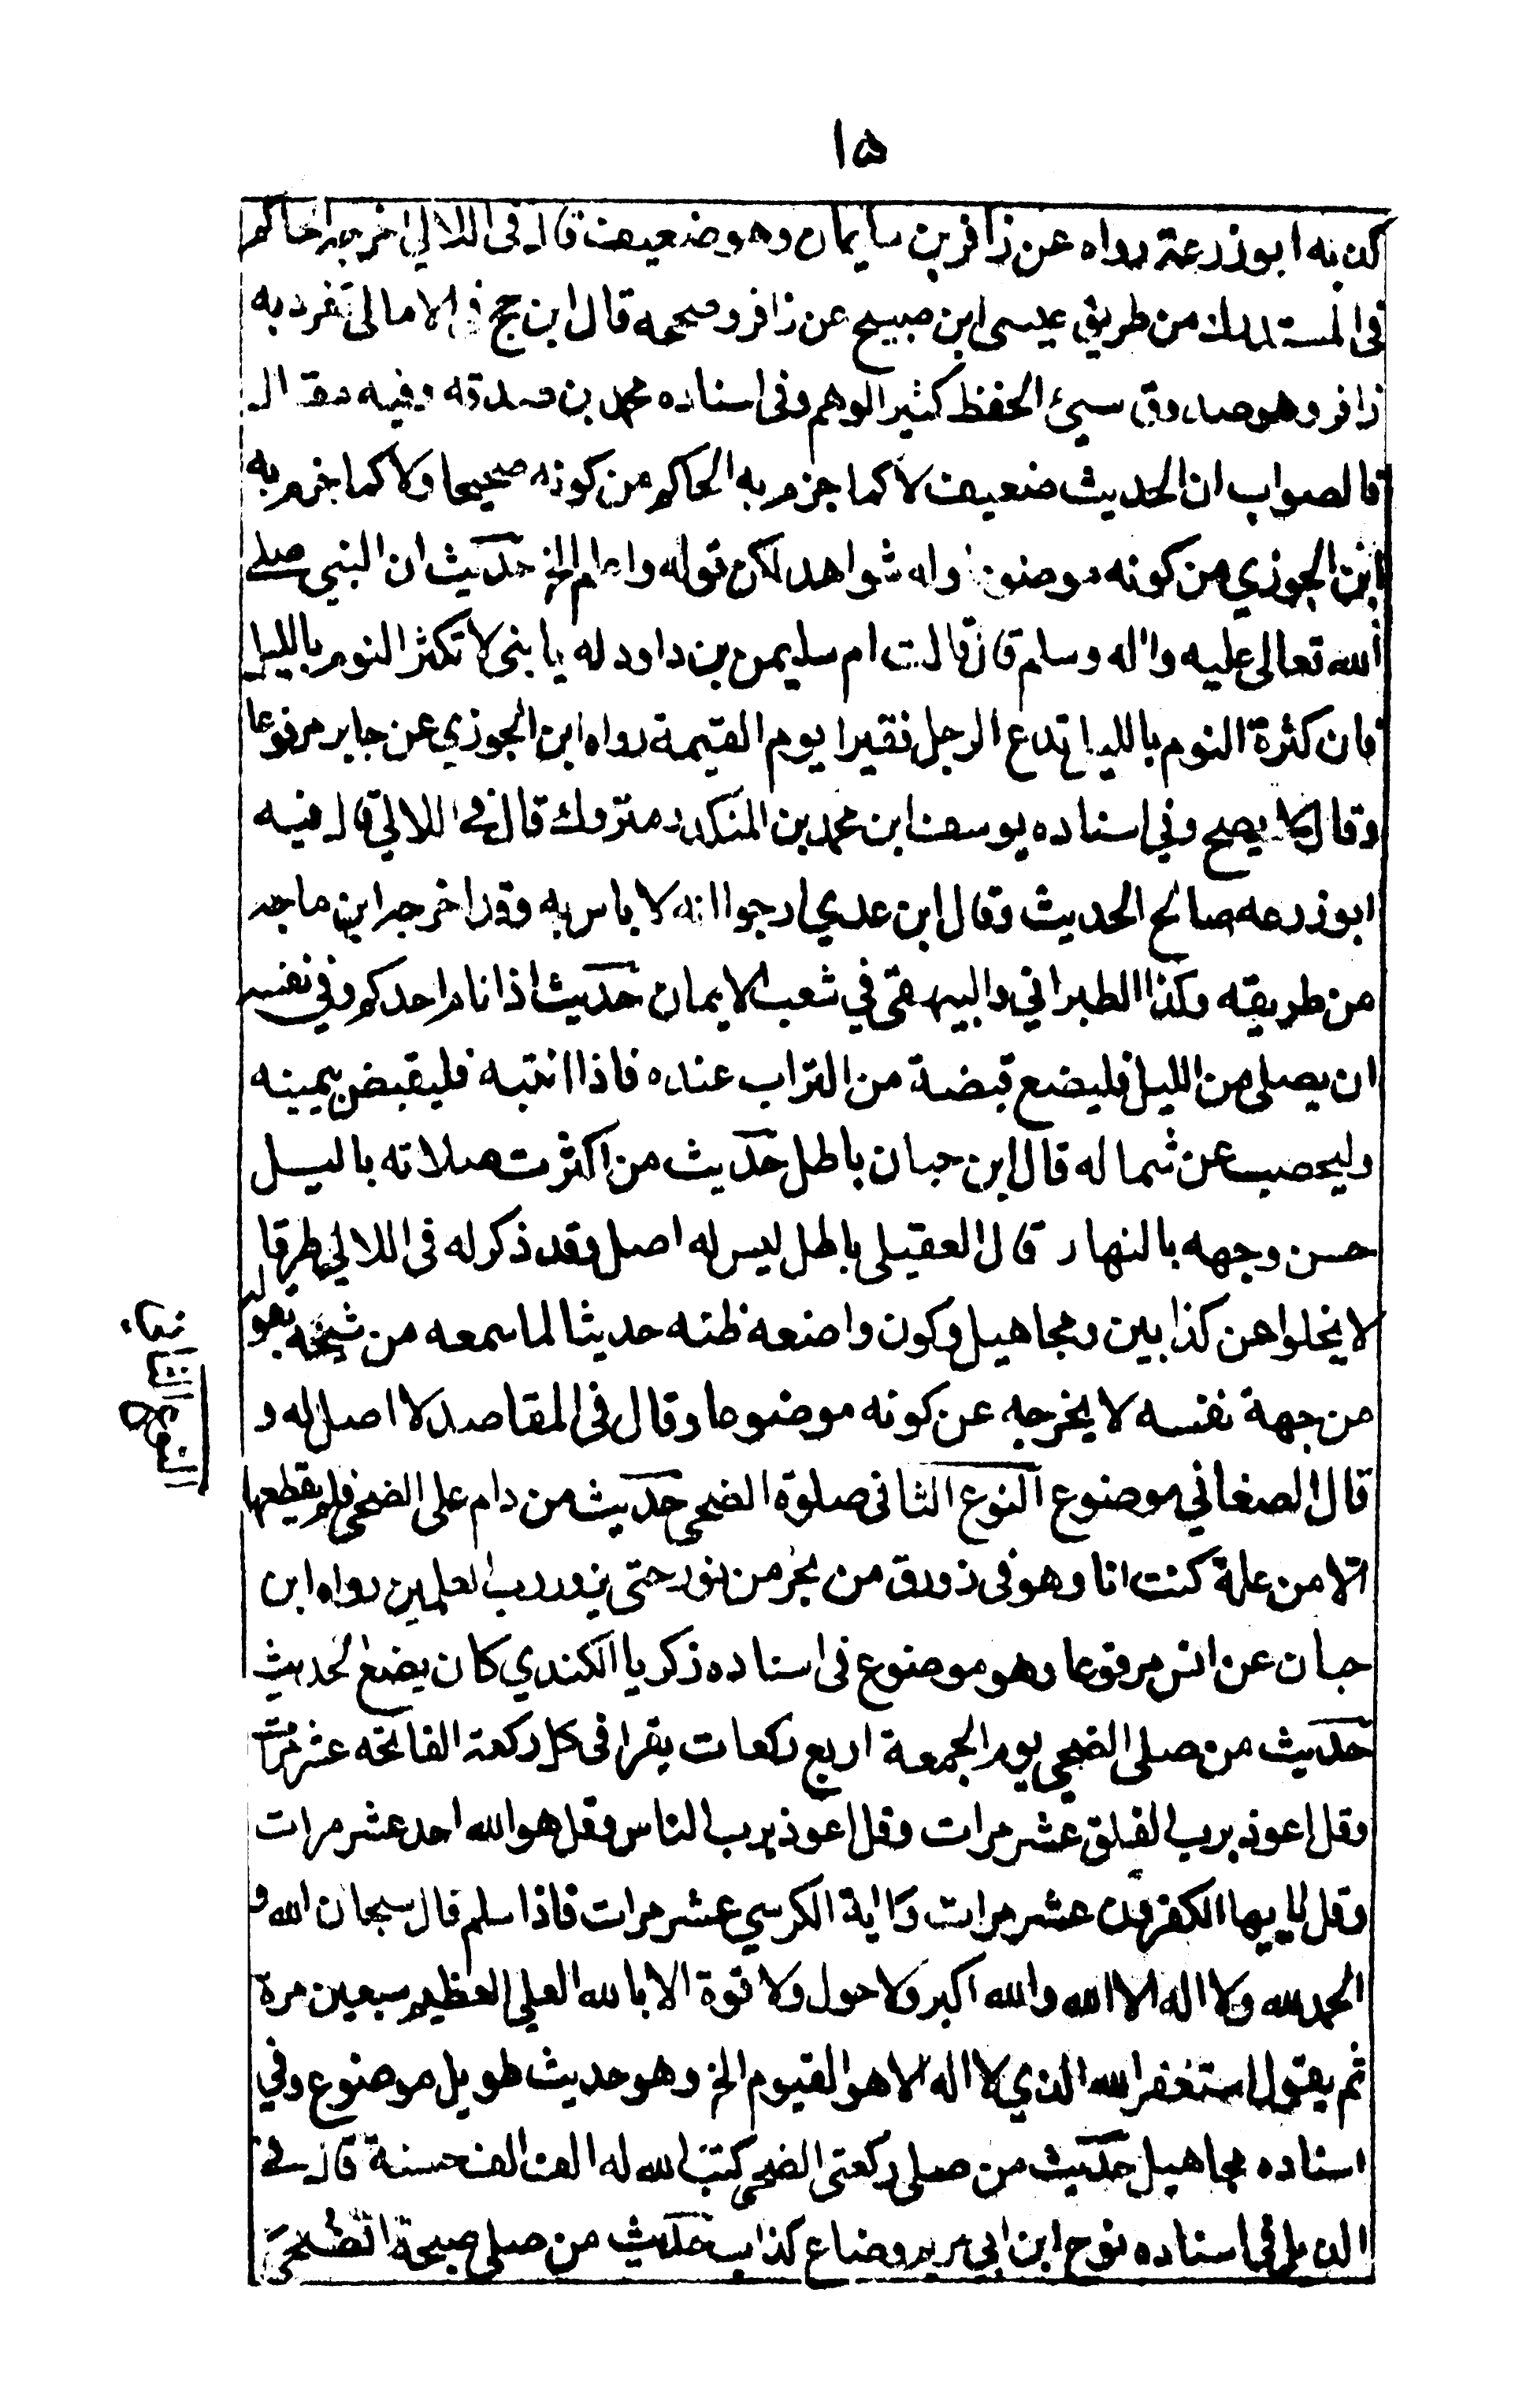 ١٥
كذبه ابو زرعة رواه عن زافر بن سليمان وهو ضعيف قال فى اللالي اخرجه الحاكم
فى المستدرك من طريق عيسى ابن صبيح عن زافر وصححه قال ابن حجر فى الامالى تفرد به
زافر وهو صدوق سيئ الحفظ كثير الوهم وفى اسناده محمد بن صدقه وفيه مقال
فالصواب ان الحديث ضعيف لا كما جزم به الحاكم من كونه صحيحا ولا كما جزم به
ابن الجوزي من كونه موضوعا وله شواهد لكن قوله واعلم الخ حديث ان النبي صلى
الله تعالى عليه واله وسلم قال قالت ام سليمن بن داود له يا بنى لا تكثر النوم بالليل
فان كثرة النوم بالليل تدع الرجل فقيرا يوم القيمة رواه ابن الجوزي عن جابر مرفوعا
وقال لا يصح وفي اسناده يوسف ابن محمد بن المنكدر متروك قال في اللالي قال فيه
ابو زرعه صالح الحديث وقال ابن عدي ارجوا انه لا باس به وقد اخرجه ابن ماجه
من طريقه وكذا الطبراني والبيهقى في شعب الايمان حديث اذا نام احدكم وفي نفسه
ان يصلى من الليل فليضع قبضة من التراب عنده فاذا انتبه فليقبض بيمينه
وليحصب عن شماله قال ابن حبان باطل حديث من اكثرت صلاته باليل
حسن وجهه بالنهار قال العقيلى باطل ليس له اصل وقد ذكر له فى اللالي طرقا
لا يخلوا من كذابين ومجاهيل وكون واضعه ظنه حديثا لما سمعه من شيخه يقوله
من جهة نفسه لا يخرجه عن كونه موضوعا وقال فى المقاصد لا اصل له و
قال الصغاني موضوع النوع الثانى صلوة الضحى حديث من دام على الضحى فلم يقطعها
الا من علة كنت انا وهو فى زورق من بحر من نور حتى يزور رب العلمين رواه ابن
حبان عن انس مرفوعا وهو موضوع فى اسناده زكريا الكندي كان يضع الحديث
حديث من صلى الضحى يوم الجمعة اربع ركعات يقرا فى كل ركعة الفاتحه عشر مرات
وقل اعوذ برب الفلق عشر مرات وقل اعوذ برب الناس وقل هو الله احد عشر مرات
وقل يا ايها الكفرون عشر مرات واية الكرسي عشر مرات فاذا سلم قال سبحان الله و
الحمد لله ولا اله الا الله والله اكبر ولا حول ولا قوة الا بالله العلي العظيم سبعين مرة
ثم يقول استغفر الله الذي لا اله الا هو القيوم الخ وهو حديث طويل موضوع وفي
اسناده مجاهيل حديث من صلى ركعتى الضحى كتب الله له الف الف حسنة قال في
الذيل فى اسناده نوح ابن ابي مريم وضاع كذاب حديث من صلى صبحة الضحى
النوع الثانى